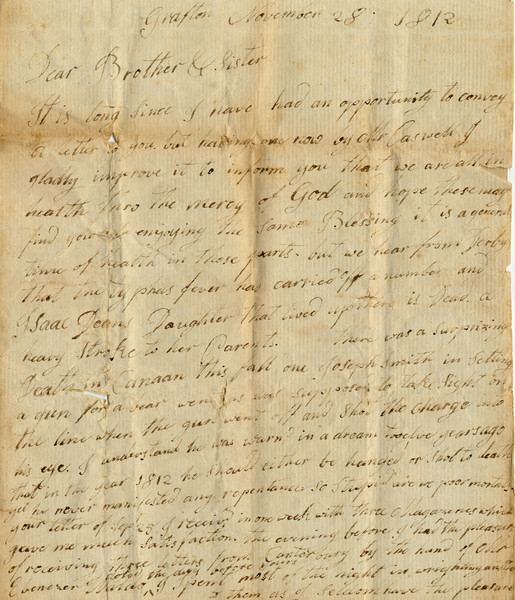 Grafton November 28. 1812
Dear Brother & Sister
It is long since I have had an opportunity to convey
a letter to you but having one now by Mr Caswell I
gladly improve it to inform you that we are all in
health thro the mercy of God and hope these may
find you enjoying the Same Blessing it is a general
time of health in these parts. but we hear from Derby
that the Typhus fever has carried off a number and
Isaac Deans Daughter that lived up there is Dead. a
heavy Stroke to her Parents. There was a Surprizing
Death in Canaan this fall one Joseph Smith in Setting
a gun for a bear went as was supposed to take Sight on
the line when the gun went off and Shot the Charge into
his eye. I understand he was warnd in a dream twelve years ago
that in the year 1812 he should either be hanged or Shot to death
yet he never manifested any repentance. so Stupid are we poor mortals
your letter of I receivd in one week with three Magazenes which
gave me much Satisfaction. the evening before I had the pleasure
of receiving three letters from Canterbury by the hand of Mr
the day before
Ebenezer I Spent most of the night in
them as I Seldom have the pleasure